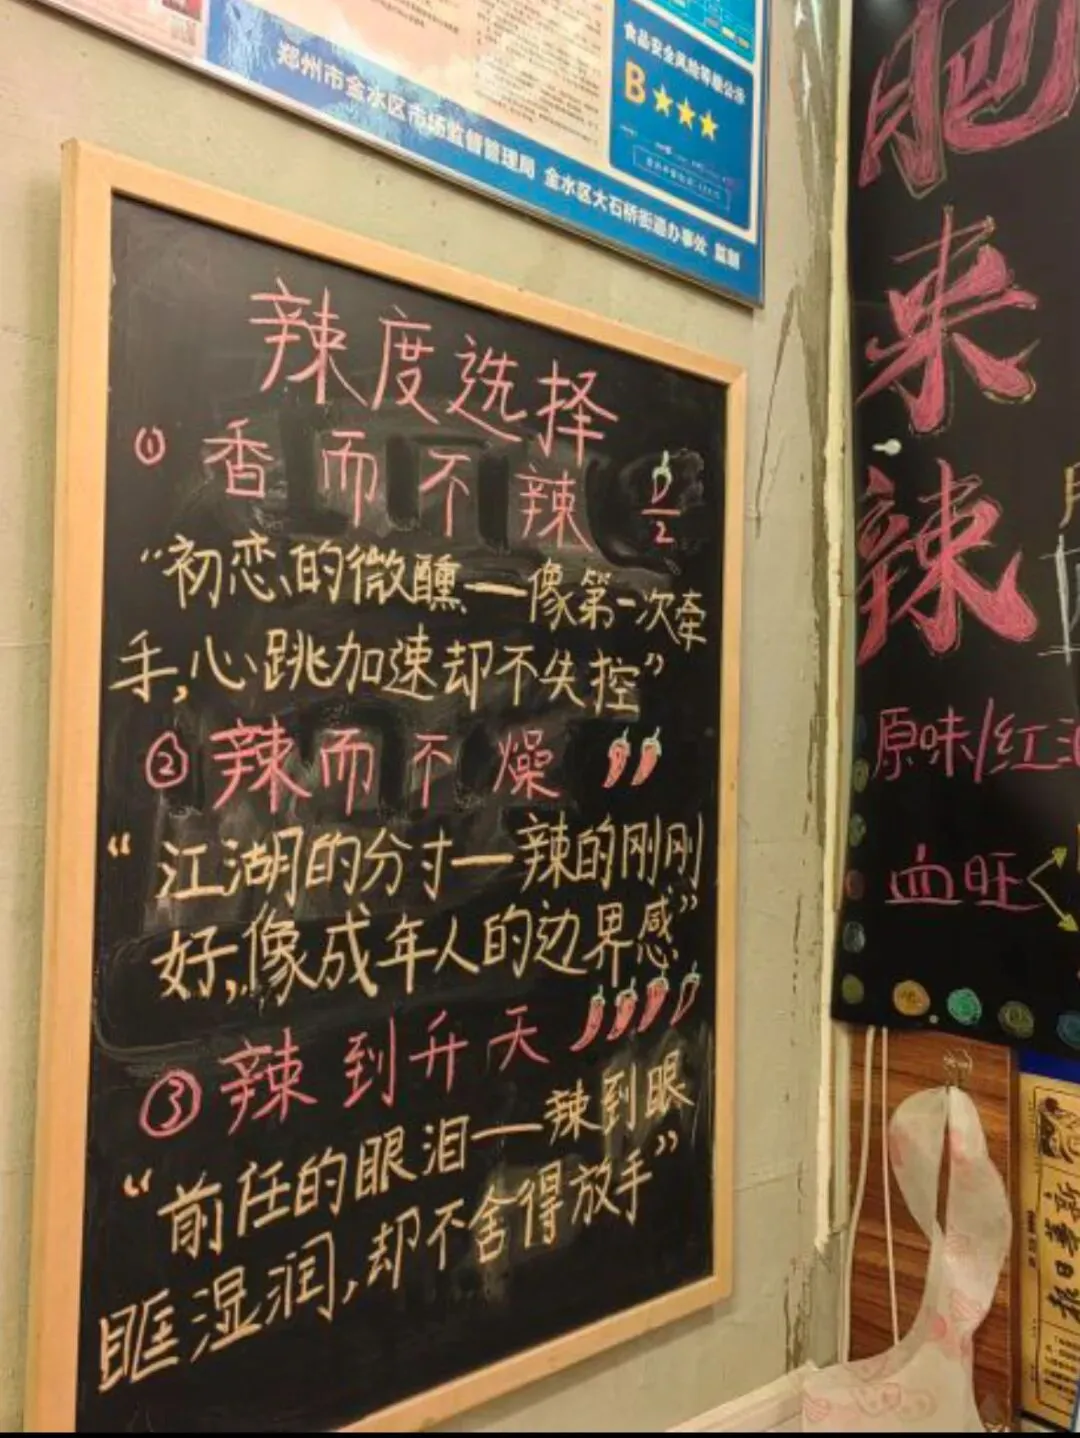 食品安全风险等级公示
B★★★
郑州市金水区市场监督管理局 金水区大石桥街道办事处 监制
辣度选择
① 香而不辣
2
“初恋的微醺—像第一次牵
手,心跳加速却不失控”
② 辣而不燥
“江湖的分寸—辣的刚刚
好,像成年人的边界感”
③ 辣到升天
“前任的眼泪—辣到眼
眶湿润,却不舍得放手”
肥来辣
原味/红油
血旺